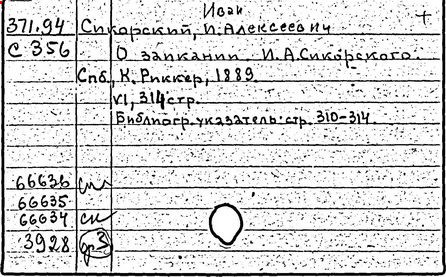 Иван
371.94 Сикорский, И. Алексеевич +
С 356 О заикании. И.А.Сикорского.
Спб, К. Риккер, 1889.
VI, 314 стр.
Библиогр. указатель: стр. 310-314
66636 сп
66635
66634 сп
3928